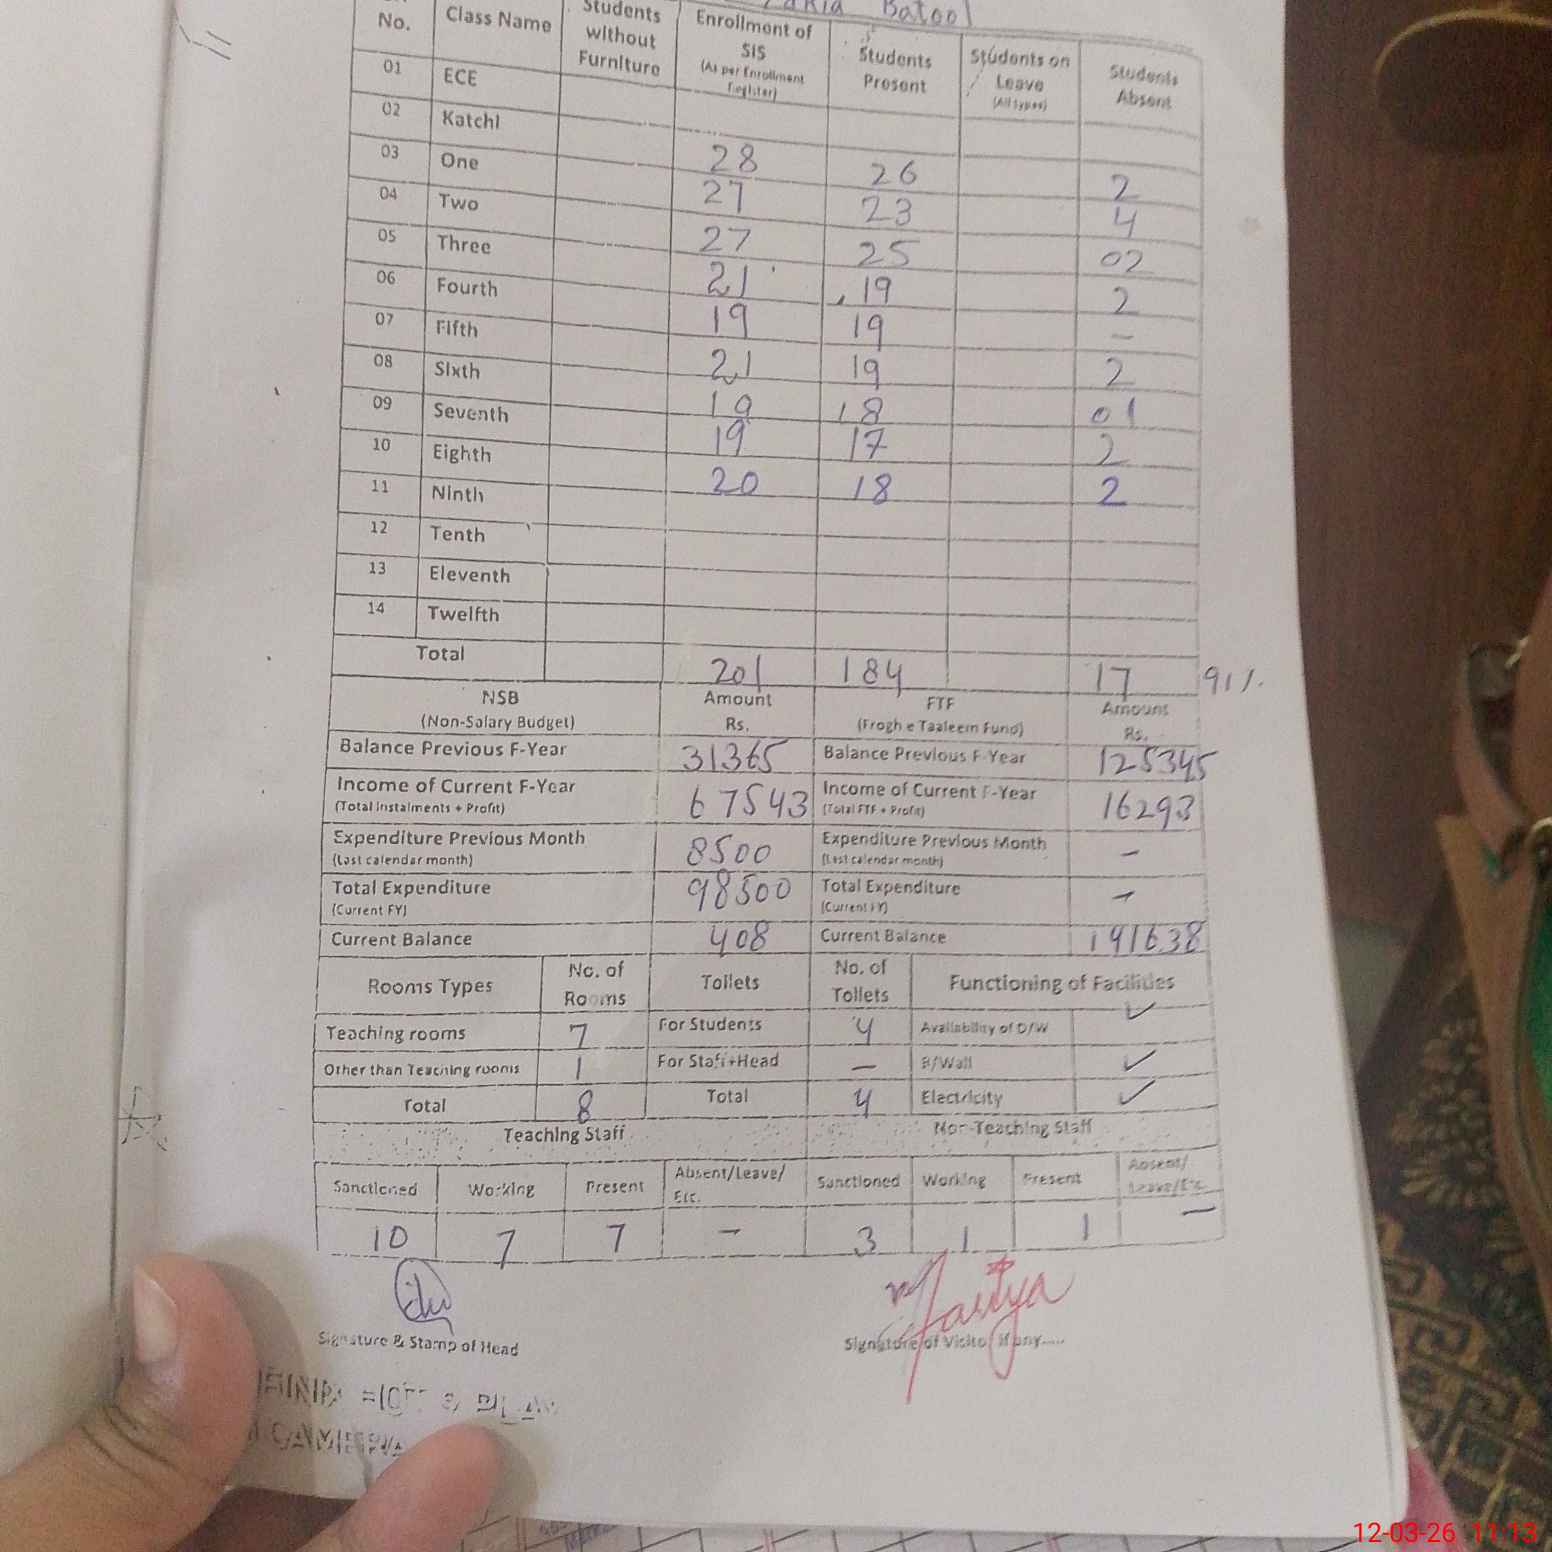 Batool
No. Class Name Students without Furniture Enrollment of SIS (As per Enrollment Register) Students Present Students on Leave (All types) Students Absent
01 ECE
02 Katchi
03 One 28 26 2
04 Two 27 23 4
05 Three 27 25 02
06 Fourth 21 19 2
07 Fifth 19 19 –
08 Sixth 21 19 2
09 Seventh 19 18 01
10 Eighth 19 17 2
11 Ninth 20 18 2
12 Tenth
13 Eleventh
14 Twelfth
Total 201 184 17 91%
NSB (Non-Salary Budget) Amount Rs. FTF (Frogh e Taaleem Fund) Amount Rs.
Balance Previous F-Year 31365 Balance Previous F-Year 125345
Income of Current F-Year (Total Instalments + Profit) 67543 Income of Current F-Year (Total FTF + Profit) 16293
Expenditure Previous Month (Last calendar month) 8500 Expenditure Previous Month (Last calendar month) –
Total Expenditure (Current FY) 98500 Total Expenditure (Current FY) –
Current Balance 408 Current Balance 141638
Rooms Types No. of Rooms Toilets No. of Toilets Functioning of Facilities
Teaching rooms 7 For Students 4 Availability of D/W ✓
Other than Teaching rooms 1 For Staff+Head – B/Wall ✓
Total 8 Total 4 Electricity ✓
Teaching Staff Non-Teaching Staff
Sanctioned Working Present Absent/Leave/Etc. Sanctioned Working Present Absent/Leave/Etc.
10 7 7 – 3 1 1 –
Signature & Stamp of Head Signature of Visitor if any.....
12-03-26 11:13